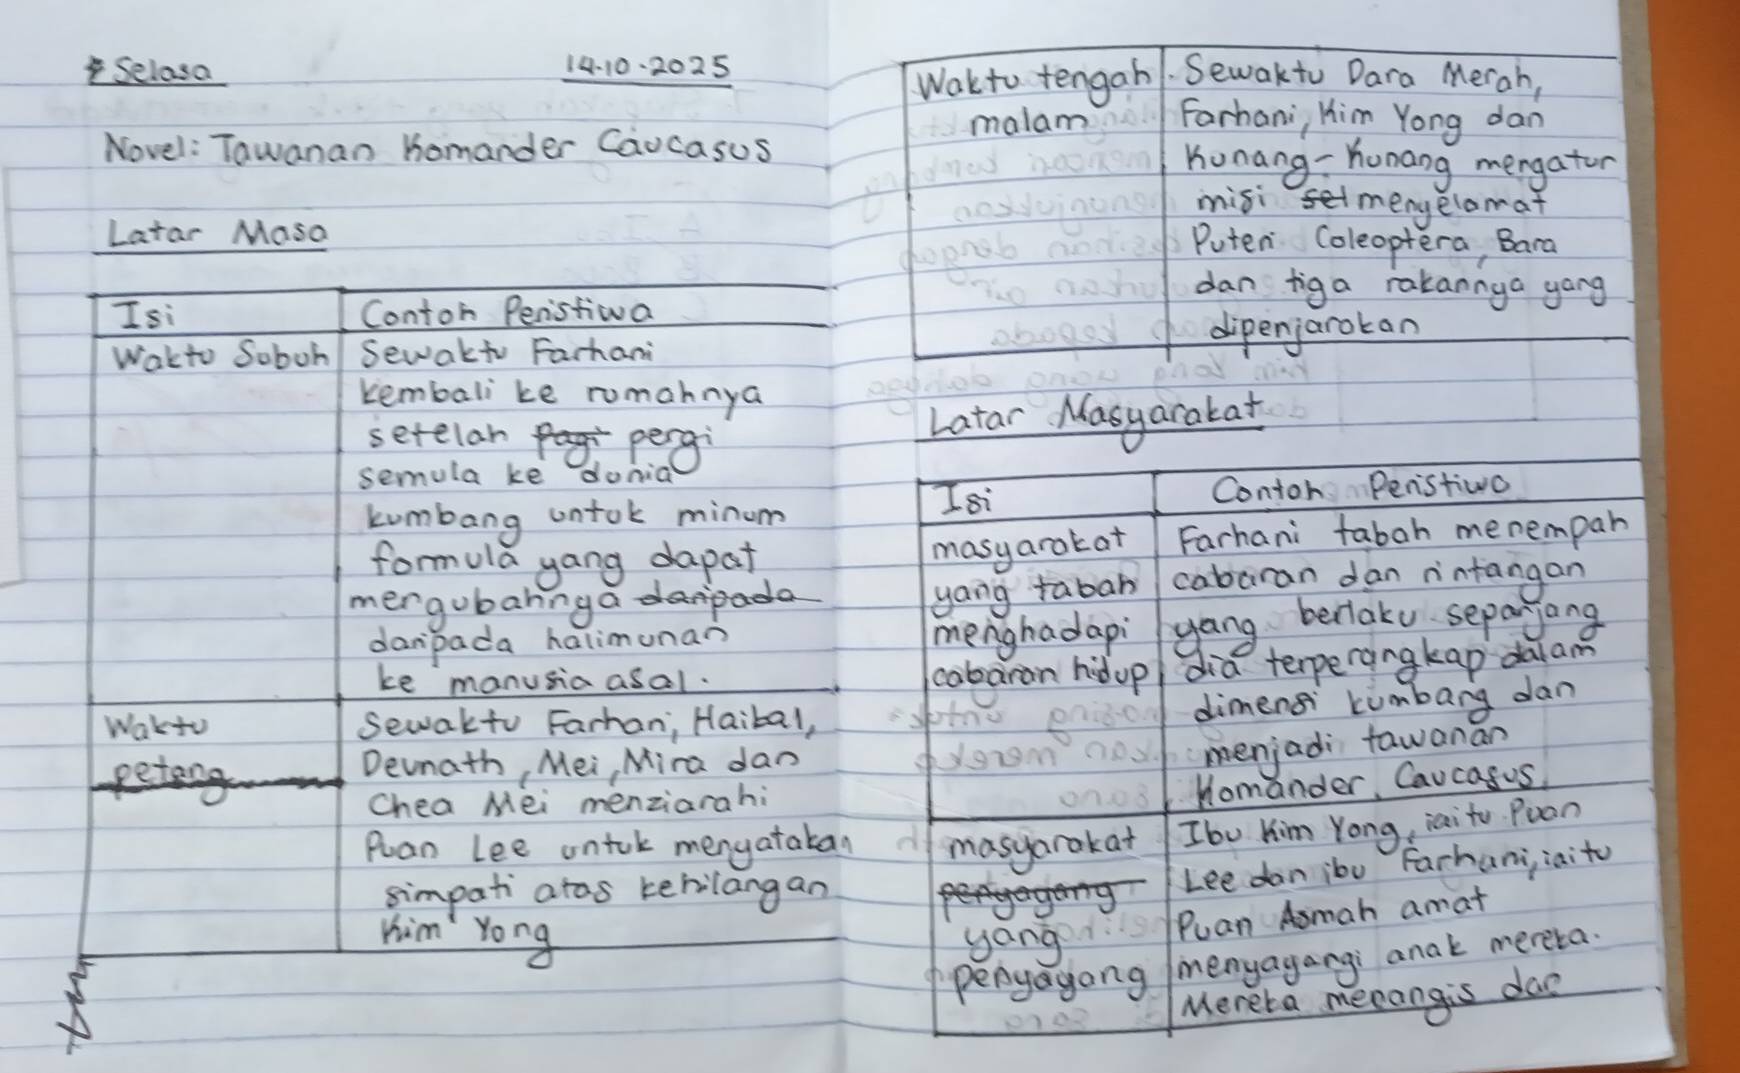 Selasa 14.10.2025
Novel: Tawanan Komander Caucasus
Latar Masa
Isi Contoh Peristiwa
Waktu Suboh Sewaktu Farhani
kembali ke rumahnya
setelah pagi pergi
semula ke dunia
kumbang untuk minum
formula yang dapat
mengubahnya daripada
daripada halimunan
ke manusia asal.
Waktu Sewaktu Farhani, Haikal,
petang Devnath, Mei, Mira dan
Chea Mei menziarahi
Puan Lee untuk menyatakan
simpati atas kehilangan
Kim Yong
Waktu tengah Sewaktu Dara Merah,
malam Farhani, Kim Yong dan
Kunang-Kunang mengatur
misi sel menyelamat
Puteri Coleoptera, Bara
dan tiga rakannya yang
dipenjarakan
Latar Masyarakat
Isi Contoh Peristiwa
masyarakat Farhani tabah menempah
yang tabah cabaran dan rintangan
menghadapi yang berlaku sepanjang
cabaran hidup dia terperangkap dalam
dimensi kumbang dan
menjadi tawanan
Komander Caucasus.
masyarakat Ibu Kim Yong, iaitu Puan
penyayang Lee dan ibu Farhani, iaitu
yang Puan Asmah amat
penyayang menyayangi anak mereka.
Mereka menangis dan